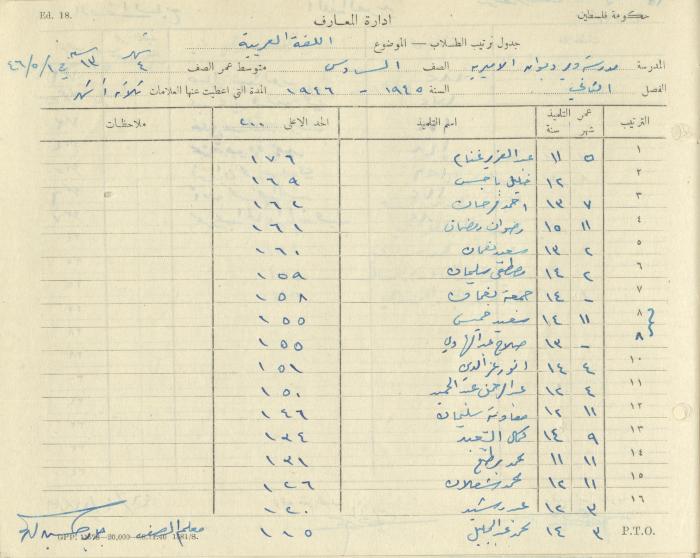 Ed. 18. حكومة فلسطين
ادارة المعارف
جدول ترتيب الطلاب — الموضوع اللغة العربية
المدرسة الاميرية الصف السادس متوسط عمر الصف شهر ٤ سنة ١٣ في ٤٦/٥/١
الفصل الثاني السنة ١٩٤٥ – ١٩٤٦ المدة التي اعطيت عنها العلامات ثلاثة اشهر
الترتيب عمر التلميذ شهر سنة اسم التلميذ الحد الاعلى ٢٠٠ ملاحظات
١ ٥ ١١ عبد العزيز غنام ١٧٦
٢ ١٢ خليل ١٦٩
٣ ٧ ١٣ احمد فرحات ١٦٢
٤ ١١ ١٥ رضوان رمضان ١٦١
٥ ٢ ١٣ سعيد نعمان ١٦٠
٦ ٢ ١٤ مصطفى سليمان ١٥٩
٧ – ١٤ جمعة نعمان ١٥٨
٨ ١١ ١٤ سعيد خميس ١٥٥
٨ – ١٣ صلاح عبد الهادي ١٥٥
١٠ ٤ ١٤ انور عز الدين ١٥١
١١ ٤ ١٢ عبد الرحمن عبد الحميد ١٥٠
١٢ ١١ ١٢ سليمان ١٤٦
١٣ ٩ ١٤ كمال السعيد ١٣٤
١٤ ١١ ١١ محمد ١٣١
١٥ ١١ ١٢ محمد شعلان ١٢٦
١٦ ٣ ١٢ رشيد ١٢٠
P.T.O. ٣ ١٤ محمد عبد الجليل ١١٥ معلم الصف